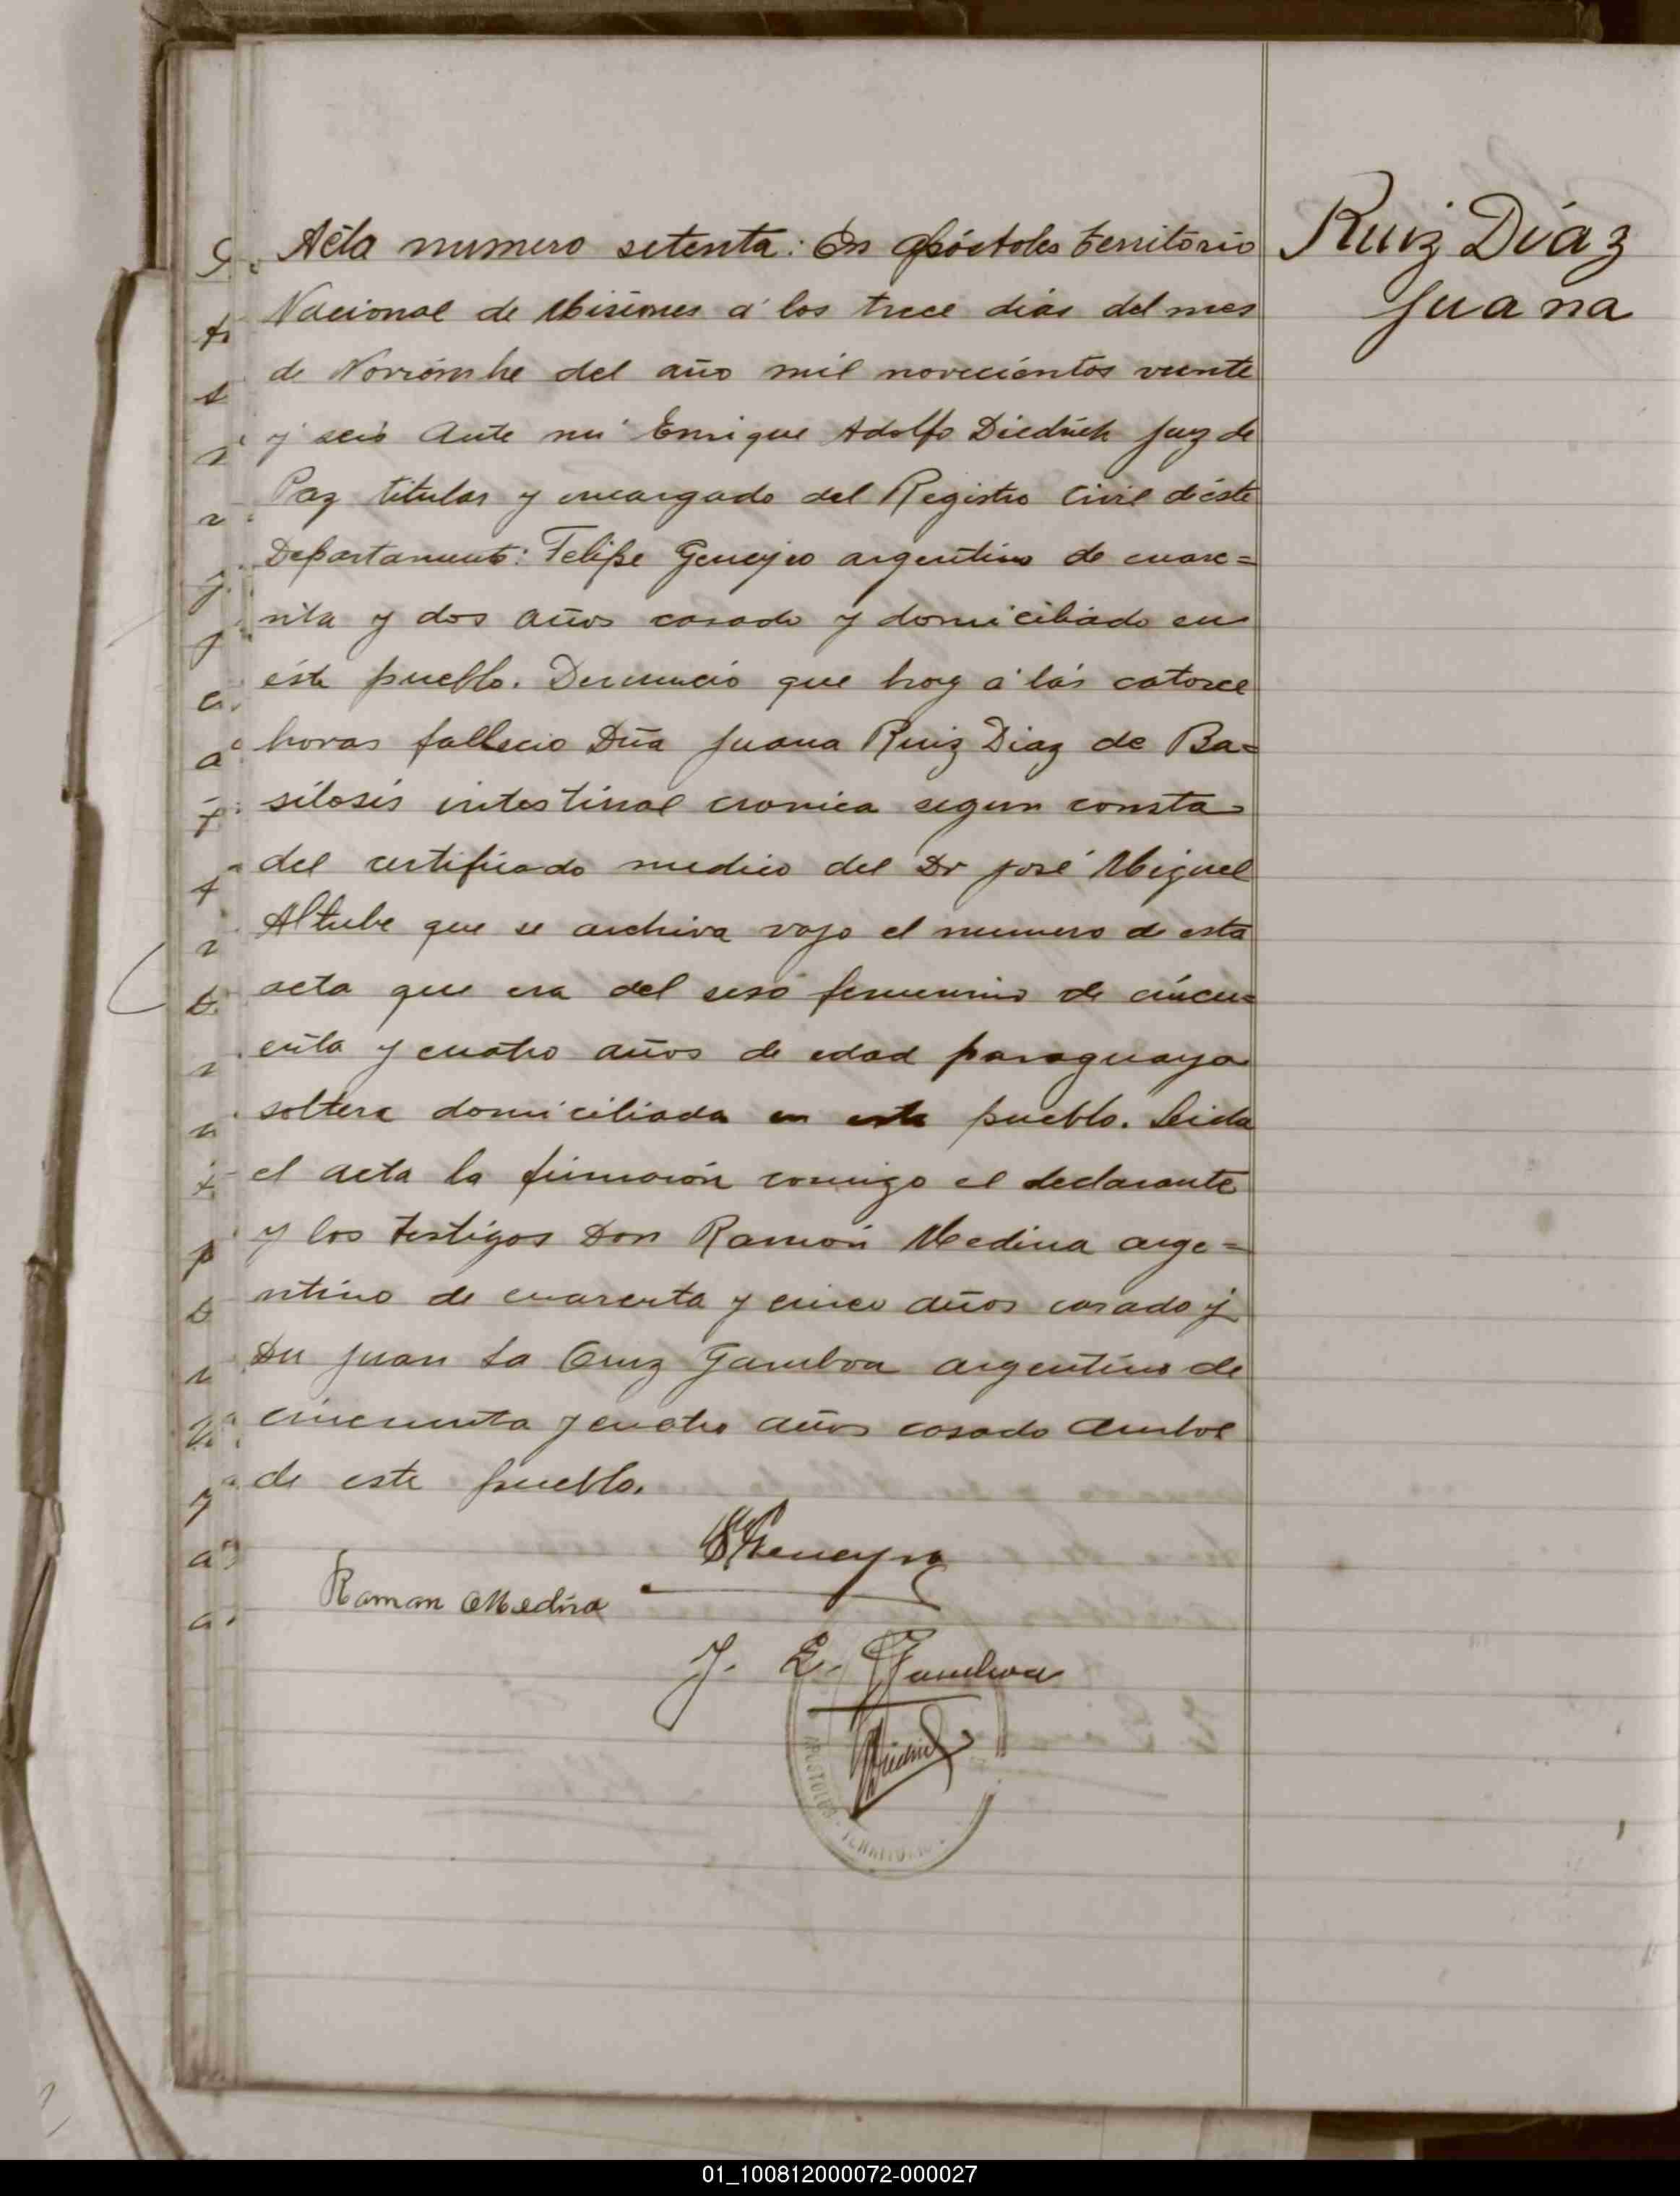 Ruiz Díaz
Juana
Acta numero setenta: En Apóstoles territorio
Nacional de Misiones á los trece días del mes
de Noviembre del año mil novecientos veinte
y seis Ante mi Enrique Adolfo Diedrich Juez de
Paz titular y encargado del Registro Civil déste
Departamento: Felipe Geneyro argentino de cuare=
nta y dos años casado y domiciliado en
éste pueblo. Denunció que hoy á lás catorce
horas fallecio Dña Juana Ruiz Diaz de Ba=
silosis intestinal cronica segun consta
del certificado medico del Dr José Miguel
Altube que se archiva vajo el numero de esta
acta que era del sexo femenino de cincu=
enta y cuatro años de edad paraguaya
soltera domiciliada en este pueblo. Leida
el acta la firmaron comigo el declarante
y los testigos Don Ramón Medina arge=
ntino de cuarenta y cinco años casado y
Dn Juan La Cruz Gamboa argentino de
cincuenta y cuatro años casado Ambos
de este pueblo.
Ramon Medina
J. L. Gamboa
APOSTOLES - TERRITORIO
01_100812000072-000027